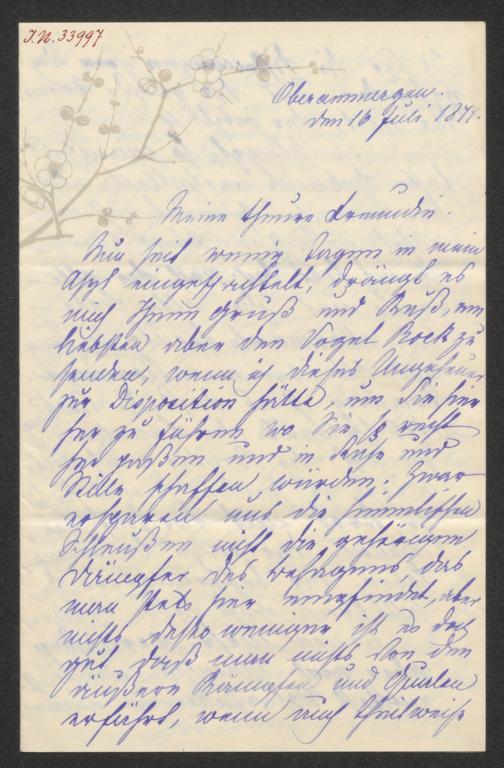 I.N. 33997
Oberammergau.
den 16 Juli 187
Meine theure Freundin.
Nun seit wenig Tagen in mein
Asyl eingeschachtelt, drängt es
mich Ihnen Gruß und Kuß, am
liebsten aber den Vogel Rock zu
senden, wenn ich dieses Ungeheuer
zur Disposition hätte, um Sie hier
her zu führen wo Sie so recht
her paßen und in Ruhe und
Stille schaffen würden. Zwar
ersparen uns die himmlischen
Schleußen nicht die gehörigen
Dämpfer des Behagens, das
man stets hier empfindet, aber
nichts desto weniger ist es doch
gut daß man nichts von den
äußern Kämpfen und Qualen
erfährt, wenn auch theilweise